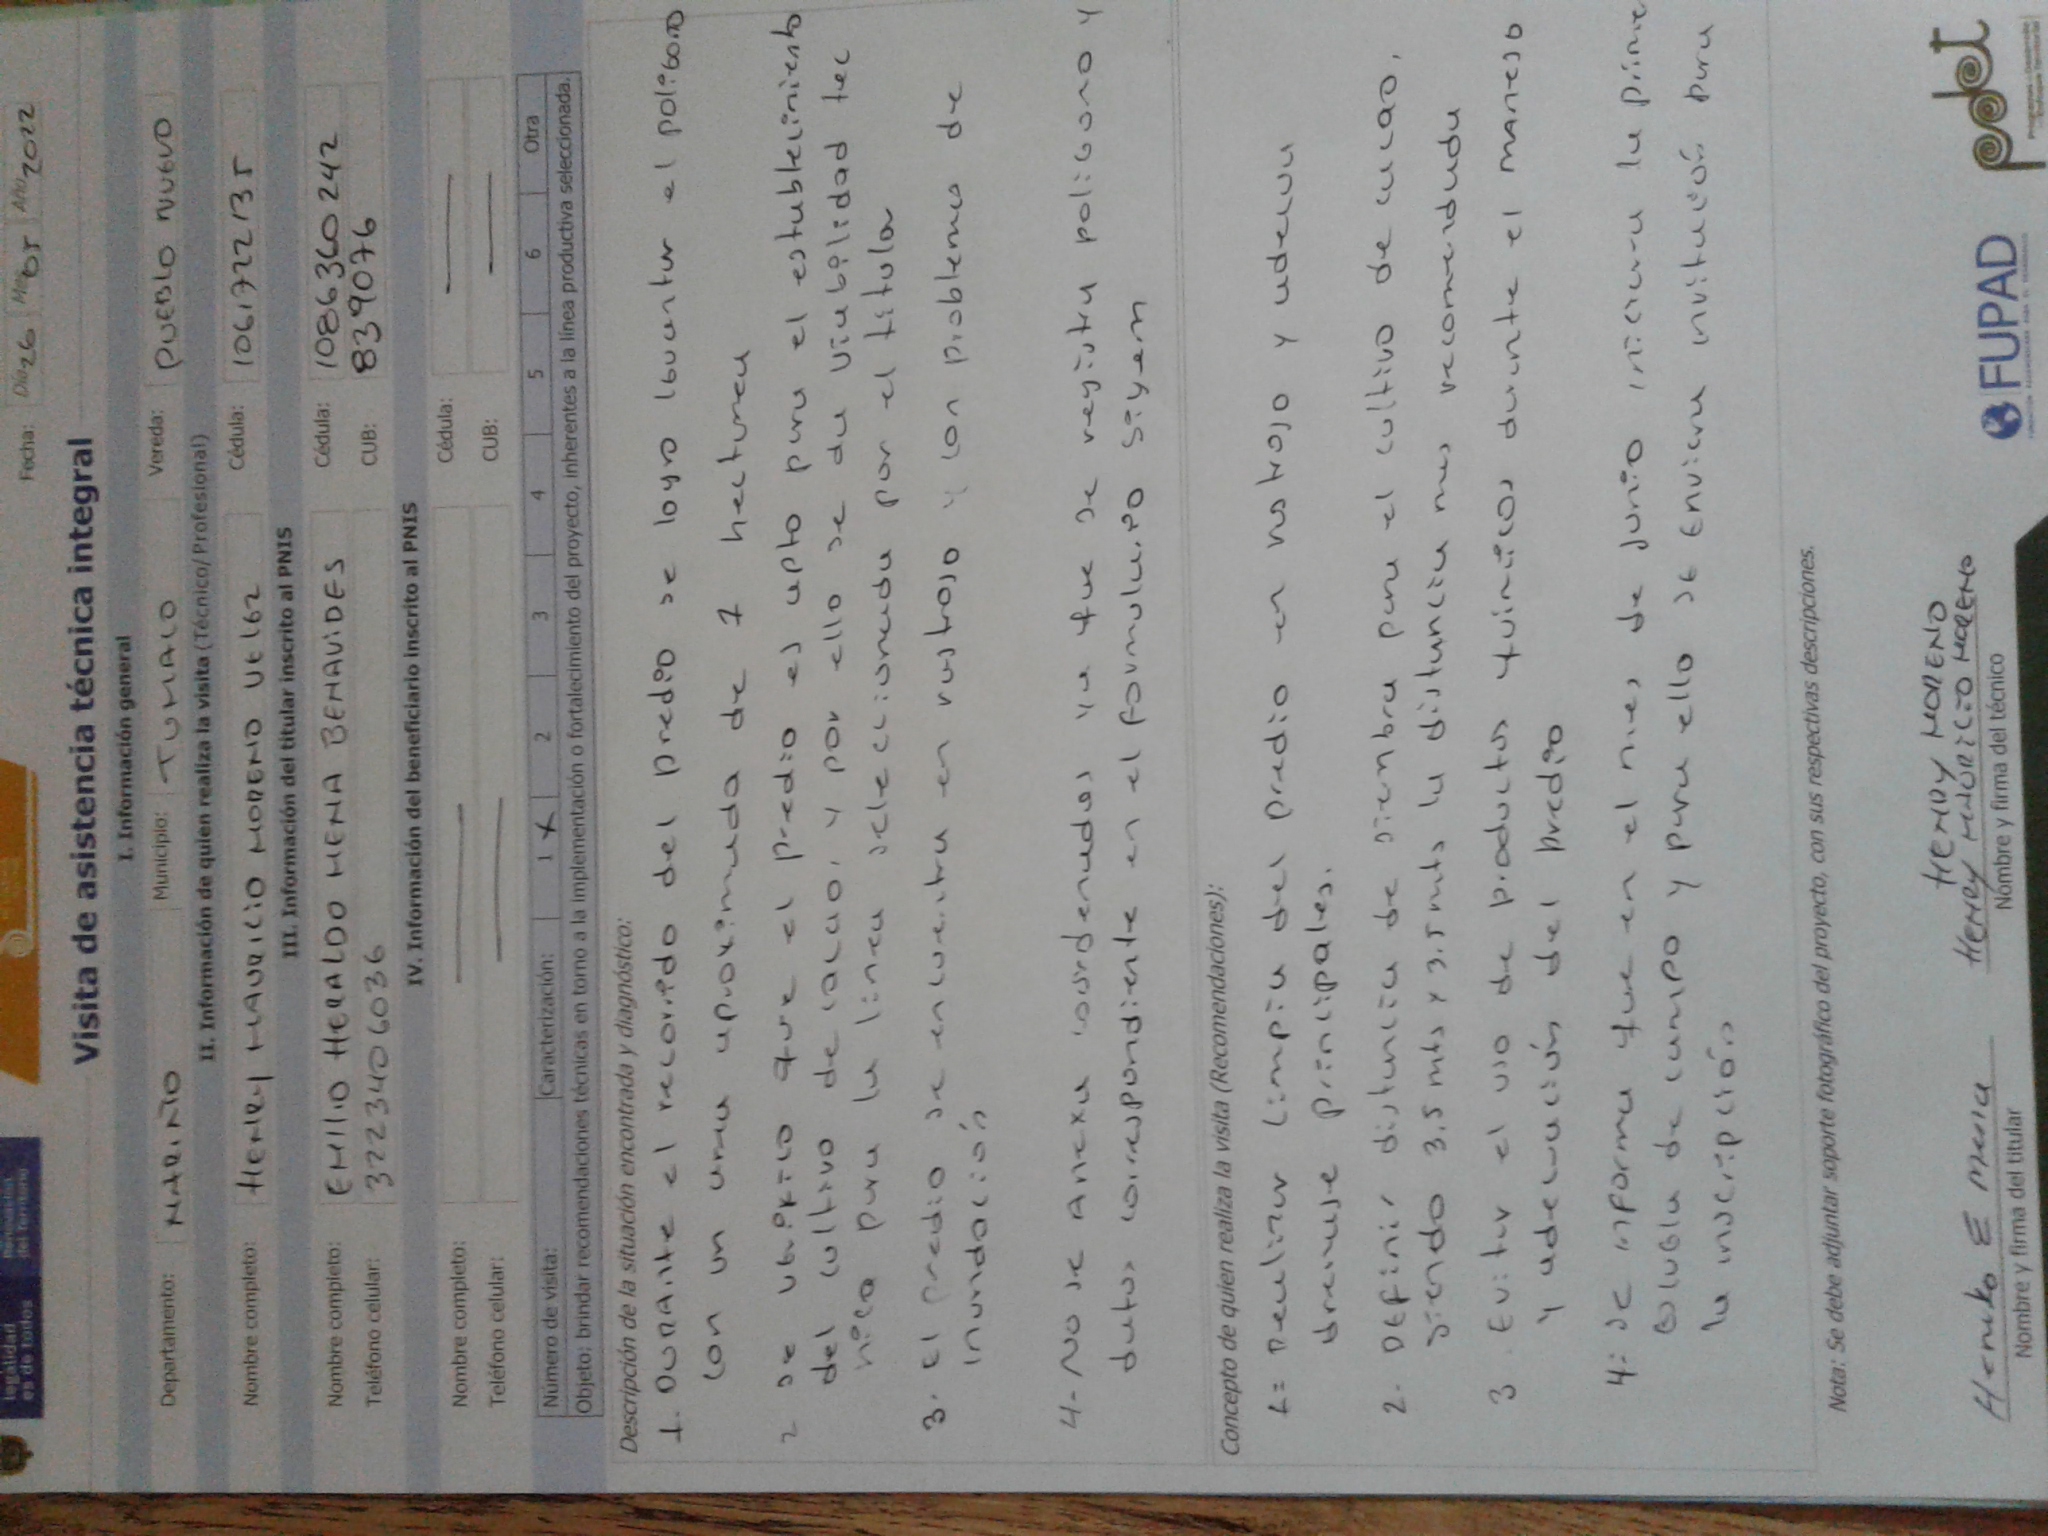 legalidad
es de todos
del Territorio
Fecha: Día 26 Mes 05 Año 2022
Visita de asistencia técnica integral
I. Información general
Departamento: NARIÑO Municipio: TUMACO Vereda: PUEBLO NUEVO
II. Información de quien realiza la visita (Técnico/Profesional)
Nombre completo: HENRY MAURICIO MORENO VELEZ Cédula: 1061722135
III. Información del titular inscrito al PNIS
Nombre completo: EMILIO HERALDO MENA BENAVIDES Cédula: 1086360242
Teléfono celular: 3223406036 CUB: 839076
IV. Información del beneficiario inscrito al PNIS
Nombre completo: Cédula:
Teléfono celular: CUB:
Número de visita: Caracterización: 1 X 2 3 4 5 6 Otra
Objeto: brindar recomendaciones técnicas en torno a la implementación o fortalecimiento del proyecto, inherentes a la línea productiva seleccionada.
Descripción de la situación encontrada y diagnóstico:
1. DURANTE el recorrido del predio se logro levantar el poligono
con un area aproximada de 1 hectarea
2 se ubico que el predio es apto para el establecimiento
del cultivo de cacao, y por ello se da viabilidad tec
nica para la linea seleccionada por el titular
3. El predio se encuentra en rastrojo y con problemas de
inundación
4- No se Anexa coordenadas ya que se registra poligono y
datos correspondiente en el formulario siyem
Concepto de quien realiza la visita (Recomendaciones):
1= Realizar limpia del predio en rastrojo y adecua
drenaje principales.
2. DEfinir distancia de siembra para el cultivo de cacao,
siendo 3.5 mts x 3.5 mts la distancia mas recomendada
3. Evitar el uso de productos quimicos durante el manejo
y adecuación del predio
4= se informa que en el mes de junio iniciara la prime
Escuela de campo y para ello se Enviara invitación para
la inscripción
Nota: Se debe adjuntar soporte fotográfico del proyecto, con sus respectivas descripciones.
E Mena
Nombre y firma del titular
HENRY MORENO
HENRY MAURICIO MORENO
Nombre y firma del técnico
FUPAD
pdet